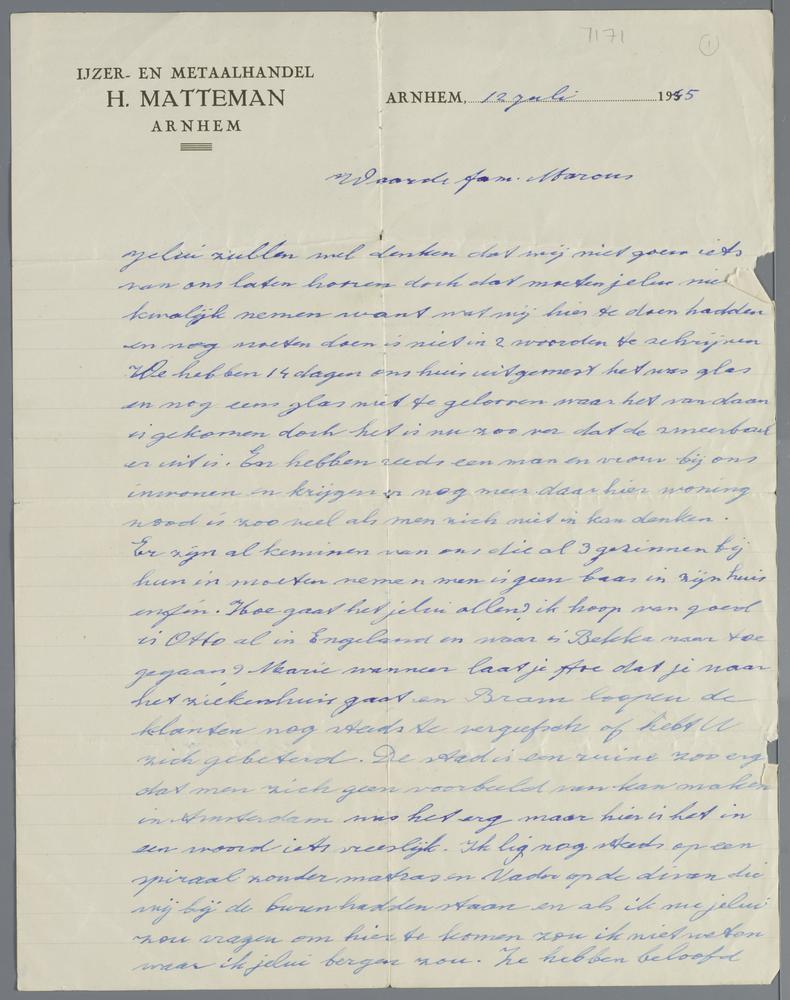 7171
1
IJZER- EN METAALHANDEL
H. MATTEMAN
ARNHEM
ARNHEM, 12 juli 1945
Waarde fam. Marcus
jelui zullen wel denken dat wij niet gouw iets
van ons laten hooren doch dat moeten jelui nie
kwalijk nemen want wat wij hier te doen hadden
en nog moeten doen is niet in 2 woorden te schrijven
We hebben 14 dagen ons huis uitgemest het was glas
en nog eens glas niet te gelooven waar het van daan
is gekomen doch het is nu zoo ver dat de smeerboel
er uit is. En hebben reeds een man en vrouw bij ons
inwonen en krijgen er nog meer daar hier woning
nood is zoo veel als men zich niet in kan denken.
Er zijn al kennissen van ons die al 3 gezinnen bij
hun in moeten nemen men is geen baas in zijn huis
enfin. Hoe gaat het jelui allen? ik hoop van goed
is Otto al in Engeland en waar is Bekka naar toe
gegaan? Marie wanneer laat je Jtoe dat je naar
het ziekenhuis gaat en Bram loopen de
klanten nog steeds te vergeefsch of hebt U
zich gebeterd. De stad is een ruine zoo erg
dat men zich geen voorbeeld van kan maken
in Amsterdam was het erg maar hier is het in
een woord iets vreeslijk. Ik lig nog steeds op een
spiraal zonder matras en Vader op de divan die
wij bij de buren hadden staan en als ik nu jelui
zou vragen om hier te komen zou ik niet weten
waar ik jelui bergen zou. Ze hebben beloofd